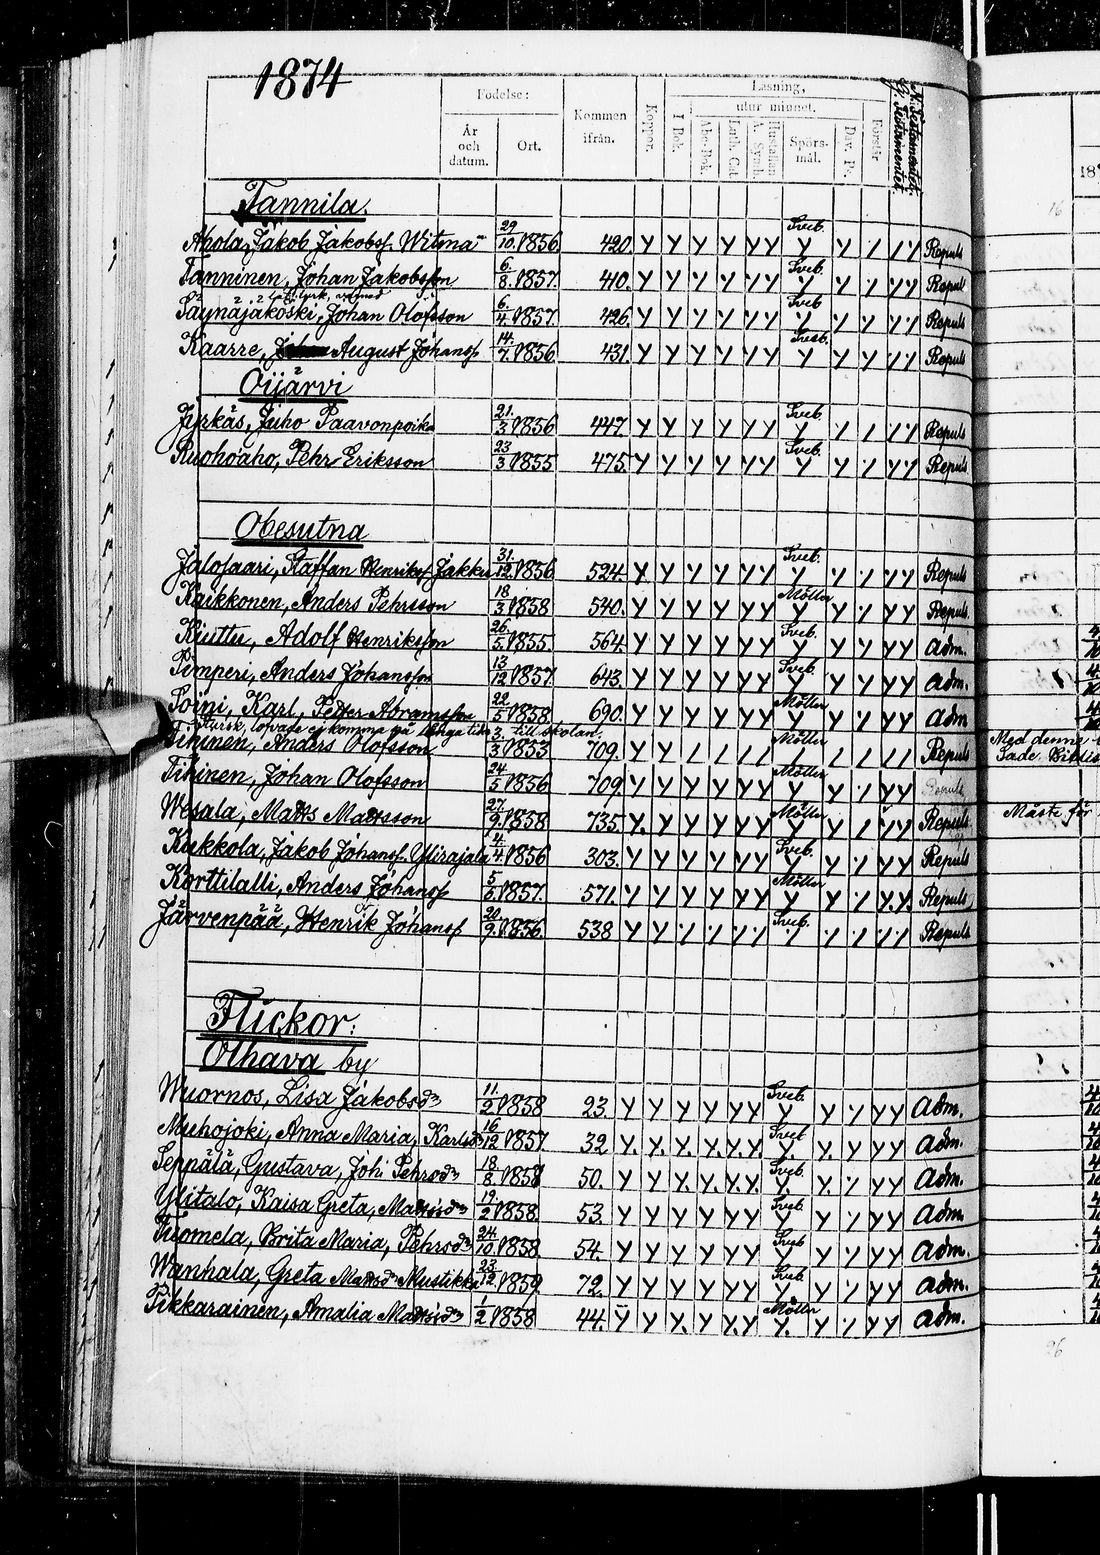 1874
Födelse:
År och datum.
Ort.
Kommen ifrån.
Koppor.
Läsning,
I Bok.
utur minnet.
Abc-Bok.
Luth. Cat.
Hustaflan A. Symb.
Spörsmål.
Dav. Ps.
Förstår
N. Testamentet.
G. Testamentet.
Tannila.
Ahola, Jakob Jakobsf. Witma 29/10. 1856 420. Sveb. Repuls
Tanninen, Johan Jakobsson 6./8. 1857. 410. Sveb. Repuls
Säynäjäkoski, Johan Olofsson 6./4. 1857. 426. Sveb. Repuls
Kaarre, August Johansf 14./7. 1856 431. Sveb. Repuls
Oijärvi
Jyrkäs, Juho Paavonpoika 21./3 1856 447. Sveb. Repuls
Ruohoaho, Pehr Eriksson 23/3 1855 475. Sveb. Repuls
Obesutna
Jalojaari, Staffan Henriksf Jakku 31./12. 1856 524. Sveb. Repuls
Kaikkonen, Anders Pehrsson 18/3 1858 540. Möller Repuls.
Kiuttu, Adolf Henriksson 26./5. 1855. 564. Sveb. Adm.
Pimperi, Anders Johansson 13/12 1857 643. Sveb. Adm.
Soini, Karl, Petter Abramsson 22/5 1858. 690. Möller Adm
lofvade ej komma på länga tider till skolan.
Tihinen, Anders Olofsson 3./3 1853 709. Möller Repuls
Tihinen, Johan Olofsson 24./5 1856 709 Möller Repuls
Wesala, Matts Mattsson 27./9. 1858 735. Möller Repuls
Kukkola, Jakob Johansf. Ylirajala 4./4. 1856 303. Sveb. Repuls
Korttilalli, Anders Johansf 5/5 1857. 571. Möller Repuls
Järvenpää, Henrik Johansf 20./9. 1856 538 Sveb. Repuls
Flickor.
Olhava by
Wuornos, Lisa Jakobsdr 11./2 1858 23. Sveb. Adm.
Muhojoki, Anna Maria, Karlsdr 16/12 1857 32 Sveb Adm.
Seppälä, Gustava, Joh: Pehrsdr 18./8. 1858 50. Sveb. Adm.
Ylitalo, Kaisa Greta, Mattsdr 19./2 1858 53. Sveb. Adm
Tuomela, Brita Maria, Pehrsdr 24./10. 1858 54. Sveb Adm.
Wanhala, Greta Mattsdr Mustikka 23./12. 1859 72. Sveb. Adm.
Pikkarainen, Amalia Mattsdr 1/2 1858 44. Möller Adm.
Med denne
Måste för
16
26